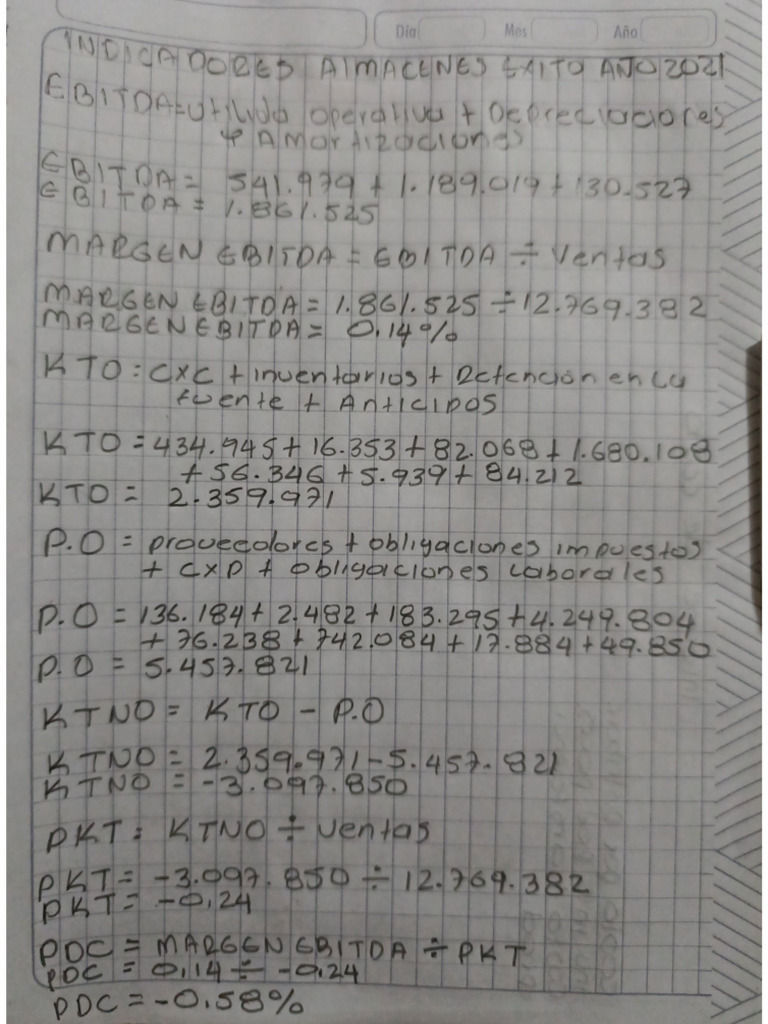 Día Mes Año
INDICADORES ALMACENES EXITO AÑO 2021
EBITDA=Utilida operativa + Depreciaciores
+ Amortizaciones
EBITDA= 541.979 + 1.189.019 + 130.527
EBITDA = 1.861.525
MARGEN EBITDA = EBITDA ÷ Ventas
MARGEN EBITDA = 1.861.525 ÷ 12.769.382
MARGEN EBITDA = 0,14%
KTO: CXC + inventarios + Retencion en La
fuente + Anticipos
KTO = 434.945 + 16.353 + 82.068 + 1.680.108
+ 56.346 + 5.939 + 84.212
KTO = 2.359.971
P.O = proveedores + obligaciones impuestos
+ CXP + obligaciones Laborales
P.O = 136.184 + 2.482 + 183.295 + 4.249.804
+ 76.238 + 742.084 + 17.884 + 49.850
P.O = 5.457.821
KTNO = KTO - P.O
KTNO = 2.359.971 - 5.457.821
KTNO = -3.097.850
PKT = KTNO ÷ Ventas
PKT = -3.097.850 ÷ 12.769.382
PKT = -0,24
PDC = MARGEN EBITDA ÷ PKT
PDC = 0,14 ÷ -0,24
PDC = -0.58%